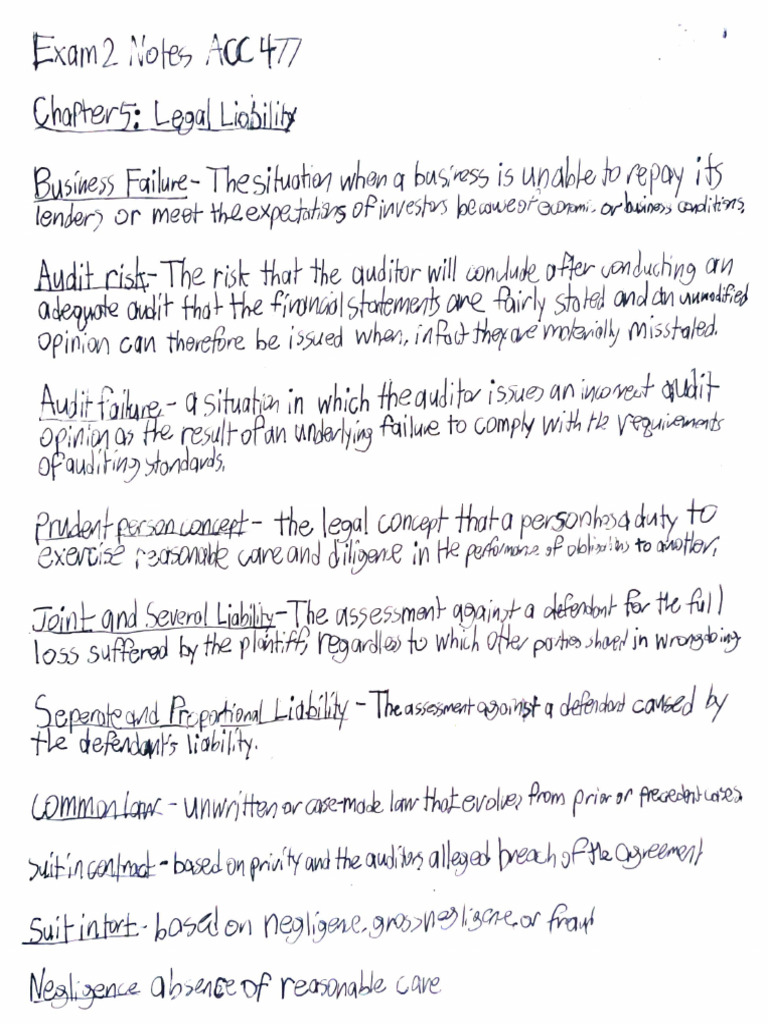 Exam 2 Notes ACC 477
Chapter 5: Legal Liability
Business Failure - The situation when a business is unable to repay its
lenders or meet the expectations of investors because of economic or business conditions.
Audit risk - The risk that the auditor will conclude after conducting an
adequate audit that the financial statements are fairly stated and an unmodified
opinion can therefore be issued when, in fact they are materially misstated.
Audit failure - a situation in which the auditor issues an incorrect audit
opinion as the result of an underlying failure to comply with the requirements
of auditing standards.
Prudent person concept - the legal concept that a person has a duty to
exercise reasonable care and diligence in the performance of obligations to another.
Joint and Several Liability - The assessment against a defendant for the full
loss suffered by the plaintiff, regardless to which other parties shared in wrongdoing
Seperate and Proportional Liability - The assessment against a defendant caused by
the defendant's liability.
Common Law - unwritten or case-made law that evolves from prior or precedent cases.
Suit in contract - based on privity and the auditors alleged breach of the agreement
Suit in tort - based on negligence, gross negligence, or fraud
Negligence absence of reasonable care